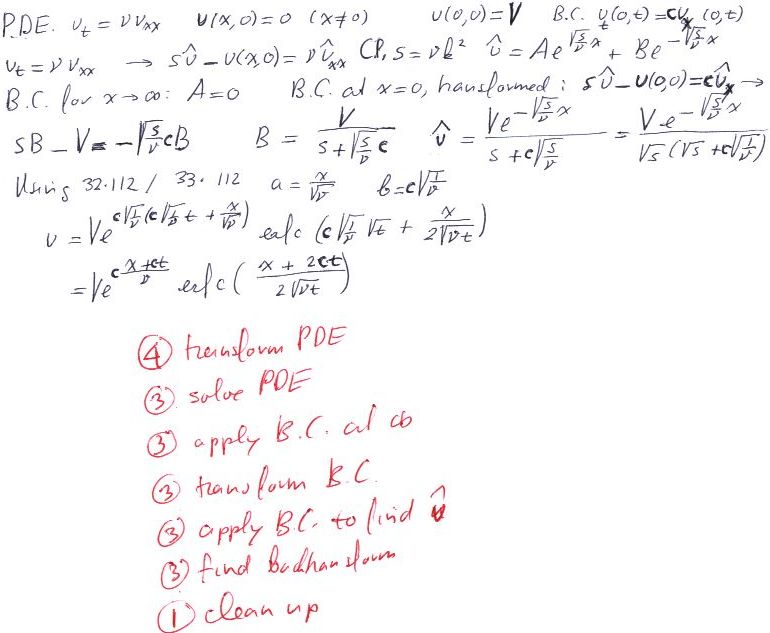 P.D.E. u_t = ν u_xx   u(x,0) = 0 (x≠0)   u(0,0) = V   B.C. u_t(0,t) = c u_x(0,t)
u_t = ν u_xx → s û − u(x,0) = ν û_xx   CP, s = ν k²   û = A e^{√(s/ν) x} + B e^{−√(s/ν) x}
B.C. for x→∞: A = 0   B.C. at x=0, transformed: s û − u(0,0) = c û_x →
sB − V = −√(s/ν) c B   B = V / (s + √(s/ν) c)   û = V e^{−√(s/ν) x} / (s + c√(s/ν)) = V e^{−√(s/ν) x} / (√s (√s + c√(1/ν)))
Using 32.112 / 33.112   a = x/√ν   b = c√(1/ν)
u = V e^{c√(1/ν) (c√(1/ν) t + x/√ν)} erfc (c√(1/ν) √t + x/(2√(νt)))
= V e^{c (x+ct)/ν} erfc ( (x + 2ct) / (2√(νt)) )
④ transform PDE
③ solve PDE
③ apply B.C. at ∞
③ transform B.C.
③ apply B.C. to find û
③ find Backtransform
① clean up